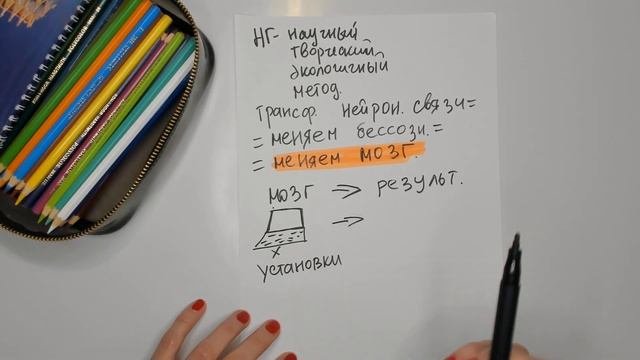 НГ- научный
творческий
экологичный
метод.
трансф. нейрон. связи =
= меняем бессозн. =
= меняем мозг.
мозг → результ.
→
х
установки